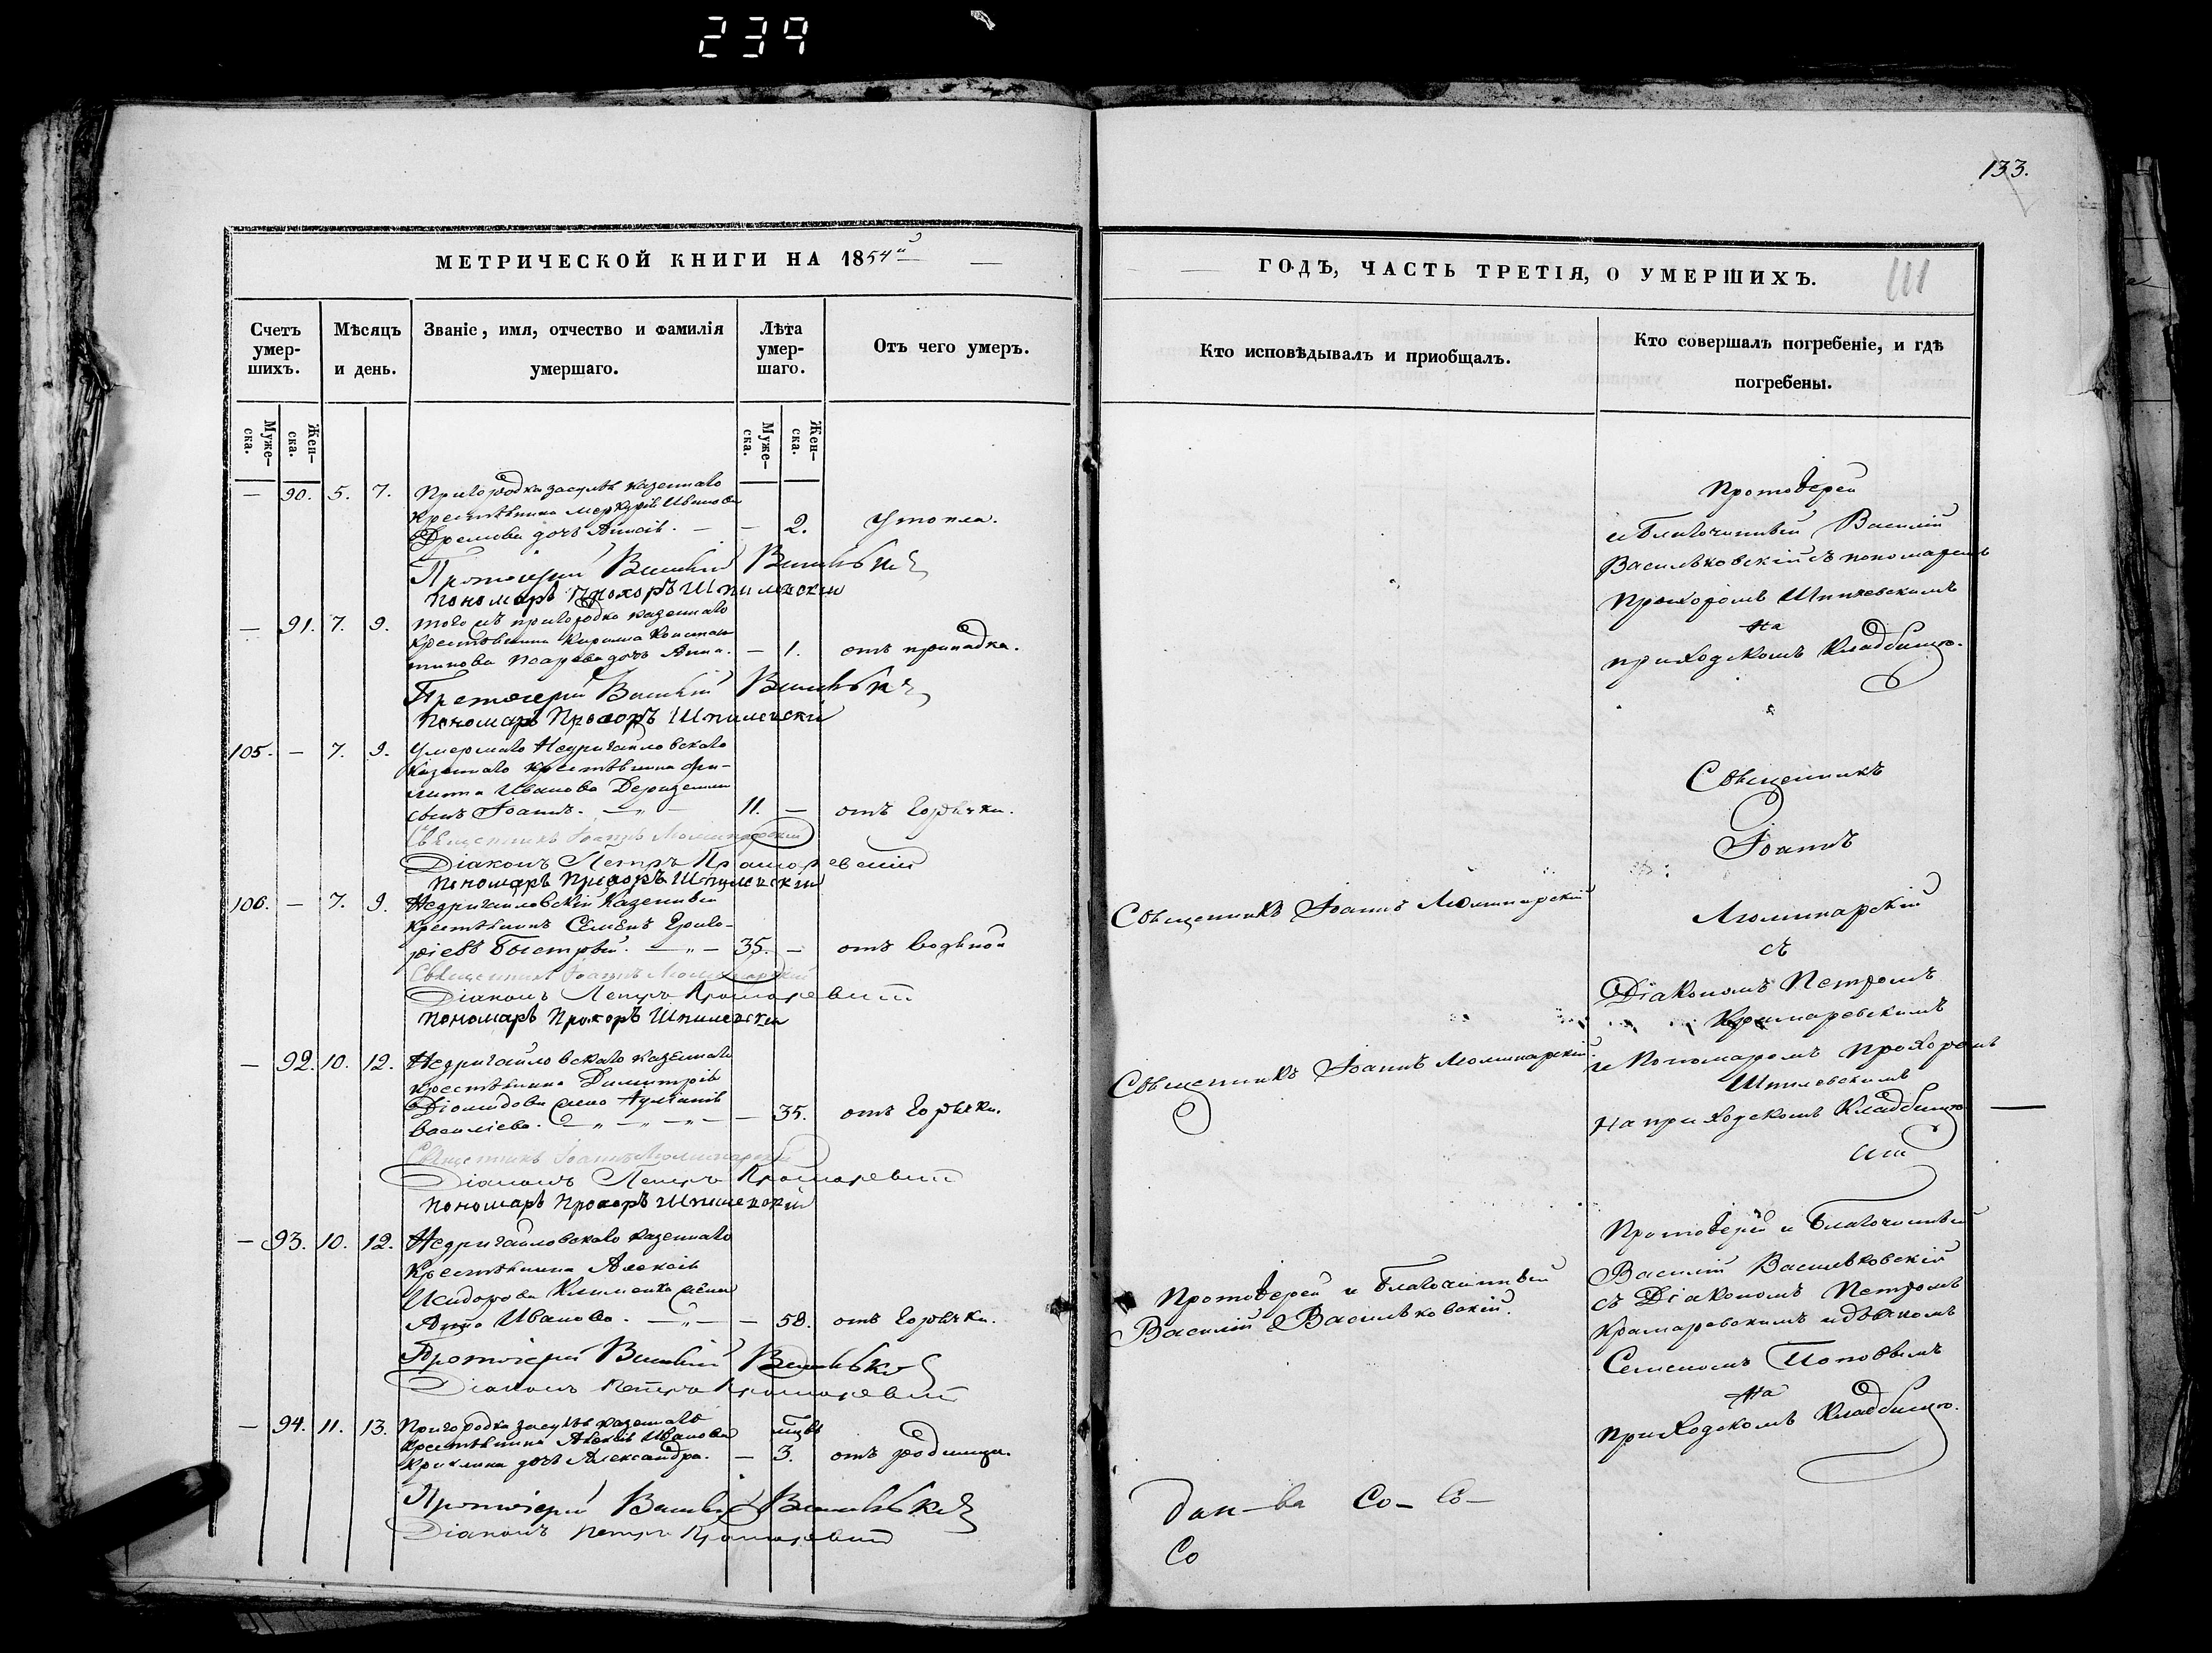 239
133.
МЕТРИЧЕСКОЙ КНИГИ НА 1854й
Счетъ умер-шихъ.
Мѣсяцъ и день.
Званіе, имя, отчество и фамилія умершаго.
Лѣта умер-шаго.
Отъ чего умеръ.
Муже-ска.
Жен-ска.
Муже-ска.
Жен-ска.
— 90. 5. 7. Пригородка засулья казеннаго
крестьянина Меркурія Иванова
дочь — 2. Утопла.
Протоіерей Василій Васильк
Пономаръ Прохоръ Шпилевскій
— 91. 7. 9. того жъ пригородка казеннаго
крестьянина Кирилла Констан
тинова дочь Анна. — 1. отъ припадка.
Протоіерей Василій Васильк
Пономаръ Прохоръ Шпилевскій
105. — 7. 9. Умершаго Недригайловскаго
казеннаго крестьянина Фи-
липпа Иванова
сынъ Іоаннъ. — „ — 11. — отъ горячки.
Священникъ Іоаннъ Люминарскій
Діаконъ Петръ Крамаревскій
Пономаръ Прохоръ Шпилевскій
106. — 7. 9. Недригайловскій казенный
крестьянинъ Семенъ Григо-
ріевъ Быстрый. — „ — 35. — отъ водяной
Священникъ Іоаннъ Люминарскій
Діаконъ Петръ Крамаревскій
Пономаръ Прохоръ Шпилевскій
— 92. 10. 12. Недригайловскаго казеннаго
крестьянина Димитрія
Діомидова жена
Васильева. — „ — „ — „ — — 35. отъ горячки.
Священникъ Іоаннъ Люминарскій
Діаконъ Петръ Крамаревскій
Пономаръ Прохоръ Шпилевскій
— 93. 10. 12. Недригайловскаго казеннаго
крестьянина Алексія
Исидорова Клименка жена
Анна Иванова. — „ — — 58. отъ горячки.
Протоіерей Василій Васильк
Діаконъ Петръ Крамаревскій
— 94. 11. 13. Пригородка засулья казеннаго
крестьянина Алексія Иванова
дочь Александра. — 3. мцвъ отъ родимца.
Протоіерей Василій Васильк
Діаконъ Петръ Крамаревскій
ГОДЪ, ЧАСТЬ ТРЕТІЯ, О УМЕРШИХЪ.
111
Кто исповѣдывалъ и пріобщалъ.
Кто совершалъ погребеніе, и гдѣ погребены.
Протоіерей
и Благочинный Василій
Васильковскій съ пономаремъ
Прохоромъ Шпилевскимъ
на
приходскомъ кладбищѣ.
Священникъ
Іоаннъ
Люминарскій
съ
Діакономъ Петромъ
Крамаревскимъ
и Пономаромъ Прохоромъ
Шпилевскимъ
на приходскомъ кладбищѣ
Священникъ Іоаннъ Люминарскій
Священникъ Іоаннъ Люминарскій
Протоіерей и Благочинный
Василій Васильковскій.
Протоіерей и Благочинный
Василій Васильковскій
съ Діакономъ Петромъ
Крамаревскимъ и дьячкомъ
Семеномъ Поповымъ
на
приходскомъ кладбищѣ.
Со— Со—
Со